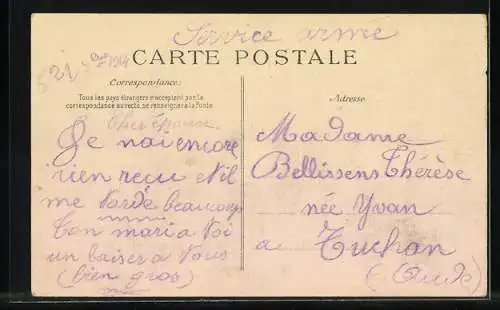 Service armé
CARTE POSTALE
Correspondance:
Tous les pays étrangers n'acceptant pas la
correspondance au recto, se renseigner à la Poste
Chère épouse
Je n'ai encore
rien recu et il
me tarde beaucoup
Ton mari a toi
un baiser a Vous
(bien gros)
Adresse
Madame
Bellissens Thérèse
née Yvan
a Tuchan
(Aude)